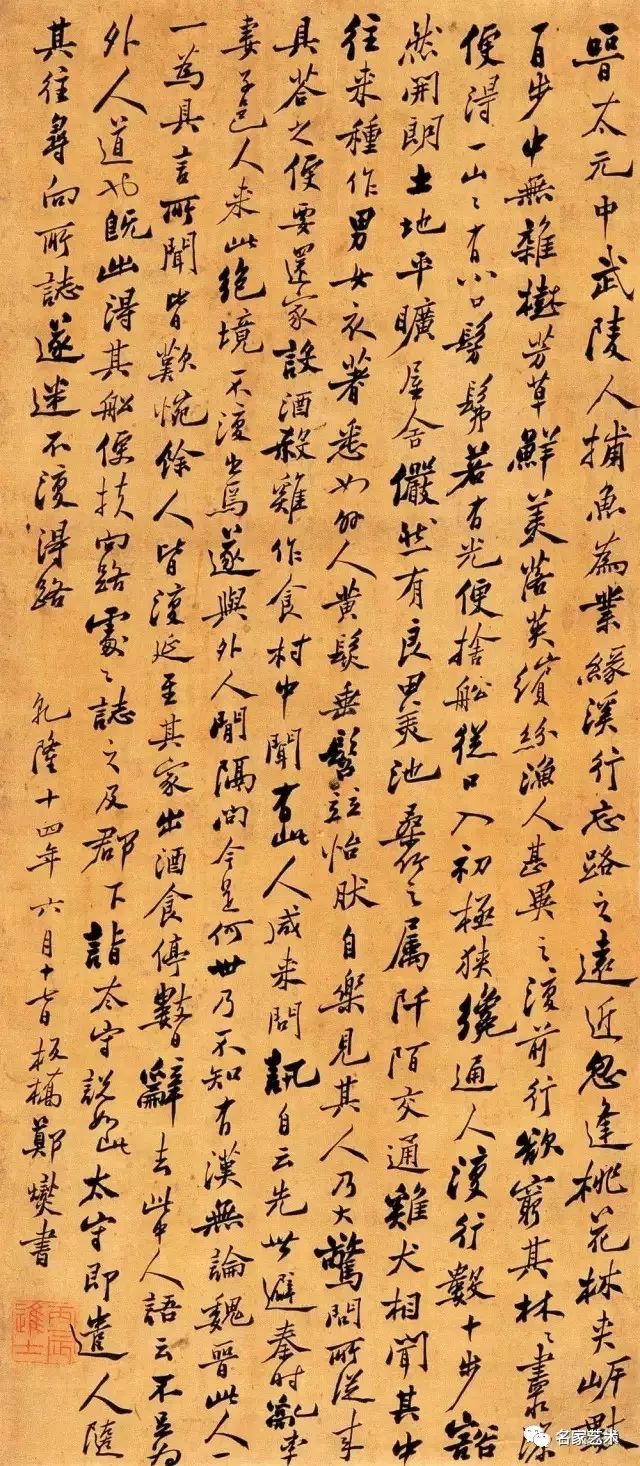 晉太元中武陵人捕魚為業緣溪行忘路之遠近忽逢桃花林夾岸數
百步中無雜樹芳草鮮美落英繽紛漁人甚異之復前行欲窮其林〻盡源
便得一山〻有小口髣髴若有光便捨船從口入初極狹纔通人復行數十步豁
然開朗土地平曠屋舍儼然有良田美池桑竹之属阡陌交通雞犬相聞其中
往来種作男女衣著悉如外人黃髮垂髫竝怡然自樂見其人乃大驚問所從来
具荅之便要還家設酒殺雞作食村中聞有此人咸来問訊自云先世避秦時亂率
妻子邑人来此絕境不復出焉遂與外人間隔問今是何世乃不知有漢無論魏晉此人一
一為具言所聞皆歎惋餘人皆復延至其家出酒食停數日辭去此中人語云不足為
外人道也既出得其船便扶向路處〻誌之及郡下詣太守說如此太守即遣人隨
其往尋向所誌遂迷不復得路 乾隆十四年六月十日板橋鄭燮書
丙辰進士
名家艺术